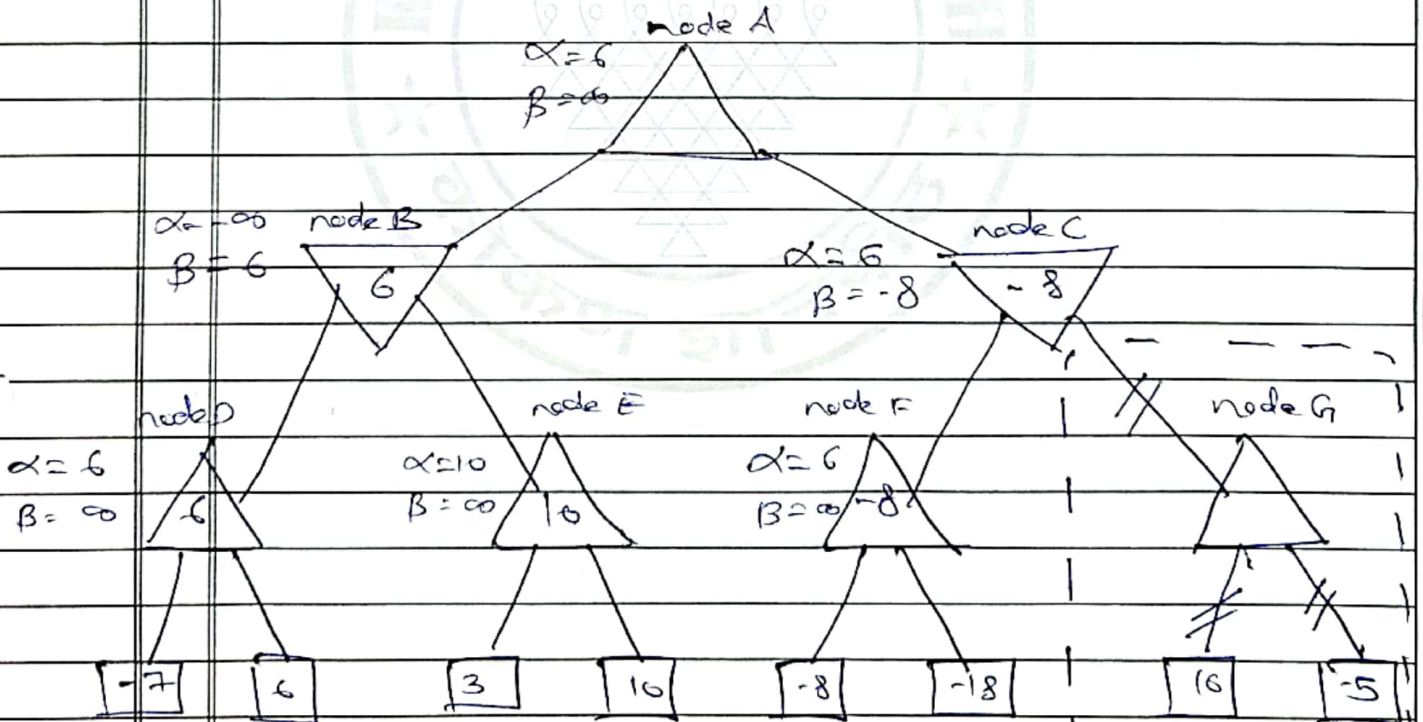 node A
α=6
β=∞
α=-∞ node B
β=6
6
node C
α=6
β=-8
-8
node D
α=6
β=∞
6
node E
α=10
β=∞
10
node F
α=6
β=∞
-8
node G
-7 6 3 10 -8 -18 -5